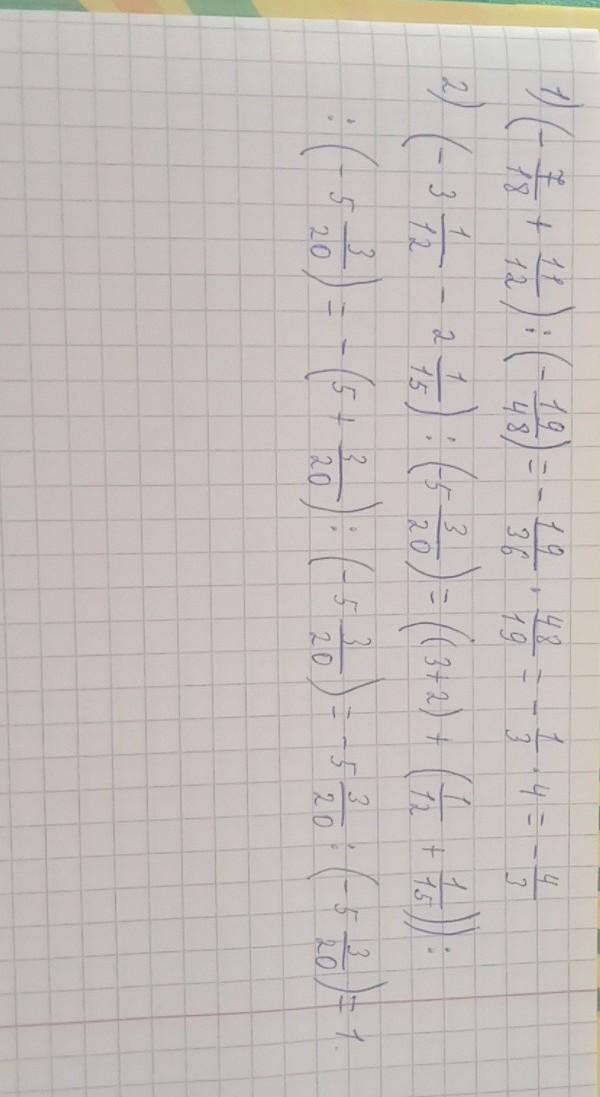 1) (- 7/18 + 11/12) : (- 19/48) = - 19/36 · 48/19 = - 1/3 · 4 = - 4/3
2) (- 3 1/12 - 2 1/15) : (-5 3/20) = ((3+2) + (1/12 + 1/15)) :
: (-5 3/20) = - (5 + 3/20) : (-5 3/20) = -5 3/20 : (-5 3/20) = 1.